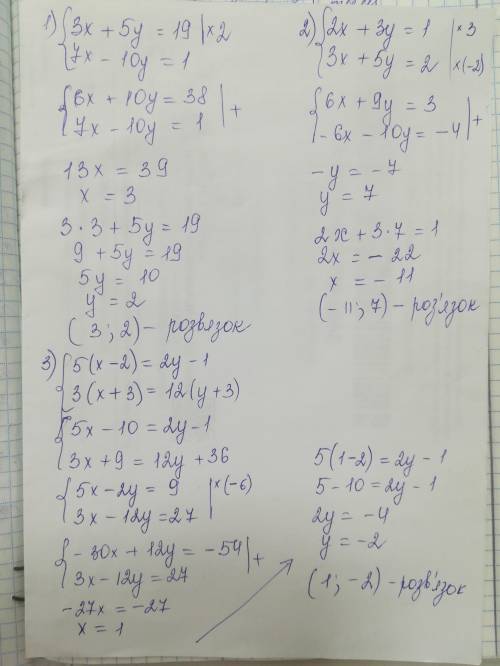 1) {3x + 5y = 19 | ×2
7x - 10y = 1
{6x + 10y = 38 | +
7x - 10y = 1
13x = 39
x = 3
3·3 + 5y = 19
9 + 5y = 19
5y = 10
y = 2
(3; 2) - розвязок
2) {2x + 3y = 1 | ×3
3x + 5y = 2 | ×(-2)
{6x + 9y = 3
-6x - 10y = -4 | +
-y = -7
y = 7
2x + 3·7 = 1
2x = -22
x = -11
(-11; 7) - роз'язок
3) {5(x-2) = 2y - 1
3(x+3) = 12(y+3)
{5x - 10 = 2y - 1
3x + 9 = 12y + 36
{5x - 2y = 9 | ×(-6)
3x - 12y = 27
{-30x + 12y = -54 | +
3x - 12y = 27
-27x = -27
x = 1
5(1-2) = 2y - 1
5 - 10 = 2y - 1
2y = -4
y = -2
(1; -2) - розв'язок